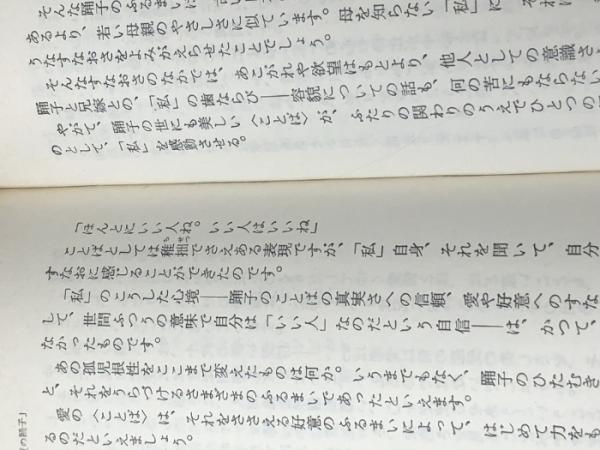 そんな踊子のふるまいに
あるより、若い母親のやさしさに似ています。母を知らない「私」に、それ
うなすなおさをよみがえらせたことでしょう。
そんなすなおさのなかでは、あこがれや欲望はもとより、他人としての意識さ
踊子と兄嫁との、「私」の歯ならび——容貌についての話も、何の苦にもならない
やがて、踊子の世にも美しい〈ことば〉が、ふたりの関わりのうえでひとつの
のとして、「私」を感動させる。
「ほんとにいい人ね。いい人はいいね」
ことばとしては稚拙でさえある表現ですが、「私」自身、それを聞いて、自分
すなおに感じることができたのです。
「私」のこうした心境——踊子のことばの真実さへの信頼、愛や好意へのすな
して、世間ふつうの意味で自分は「いい人」なのだという自信——は、かつて、
なかったものです。
あの孤児根性をここまで変えたものは何か。いうまでもなく、踊子のひたむき
と、それをうらづけるさまざまのふるまいであったといえます。
愛の〈ことば〉は、それをささえる好意のふるまいによって、はじめて力をも
るのだといえましょう。
の踊子』